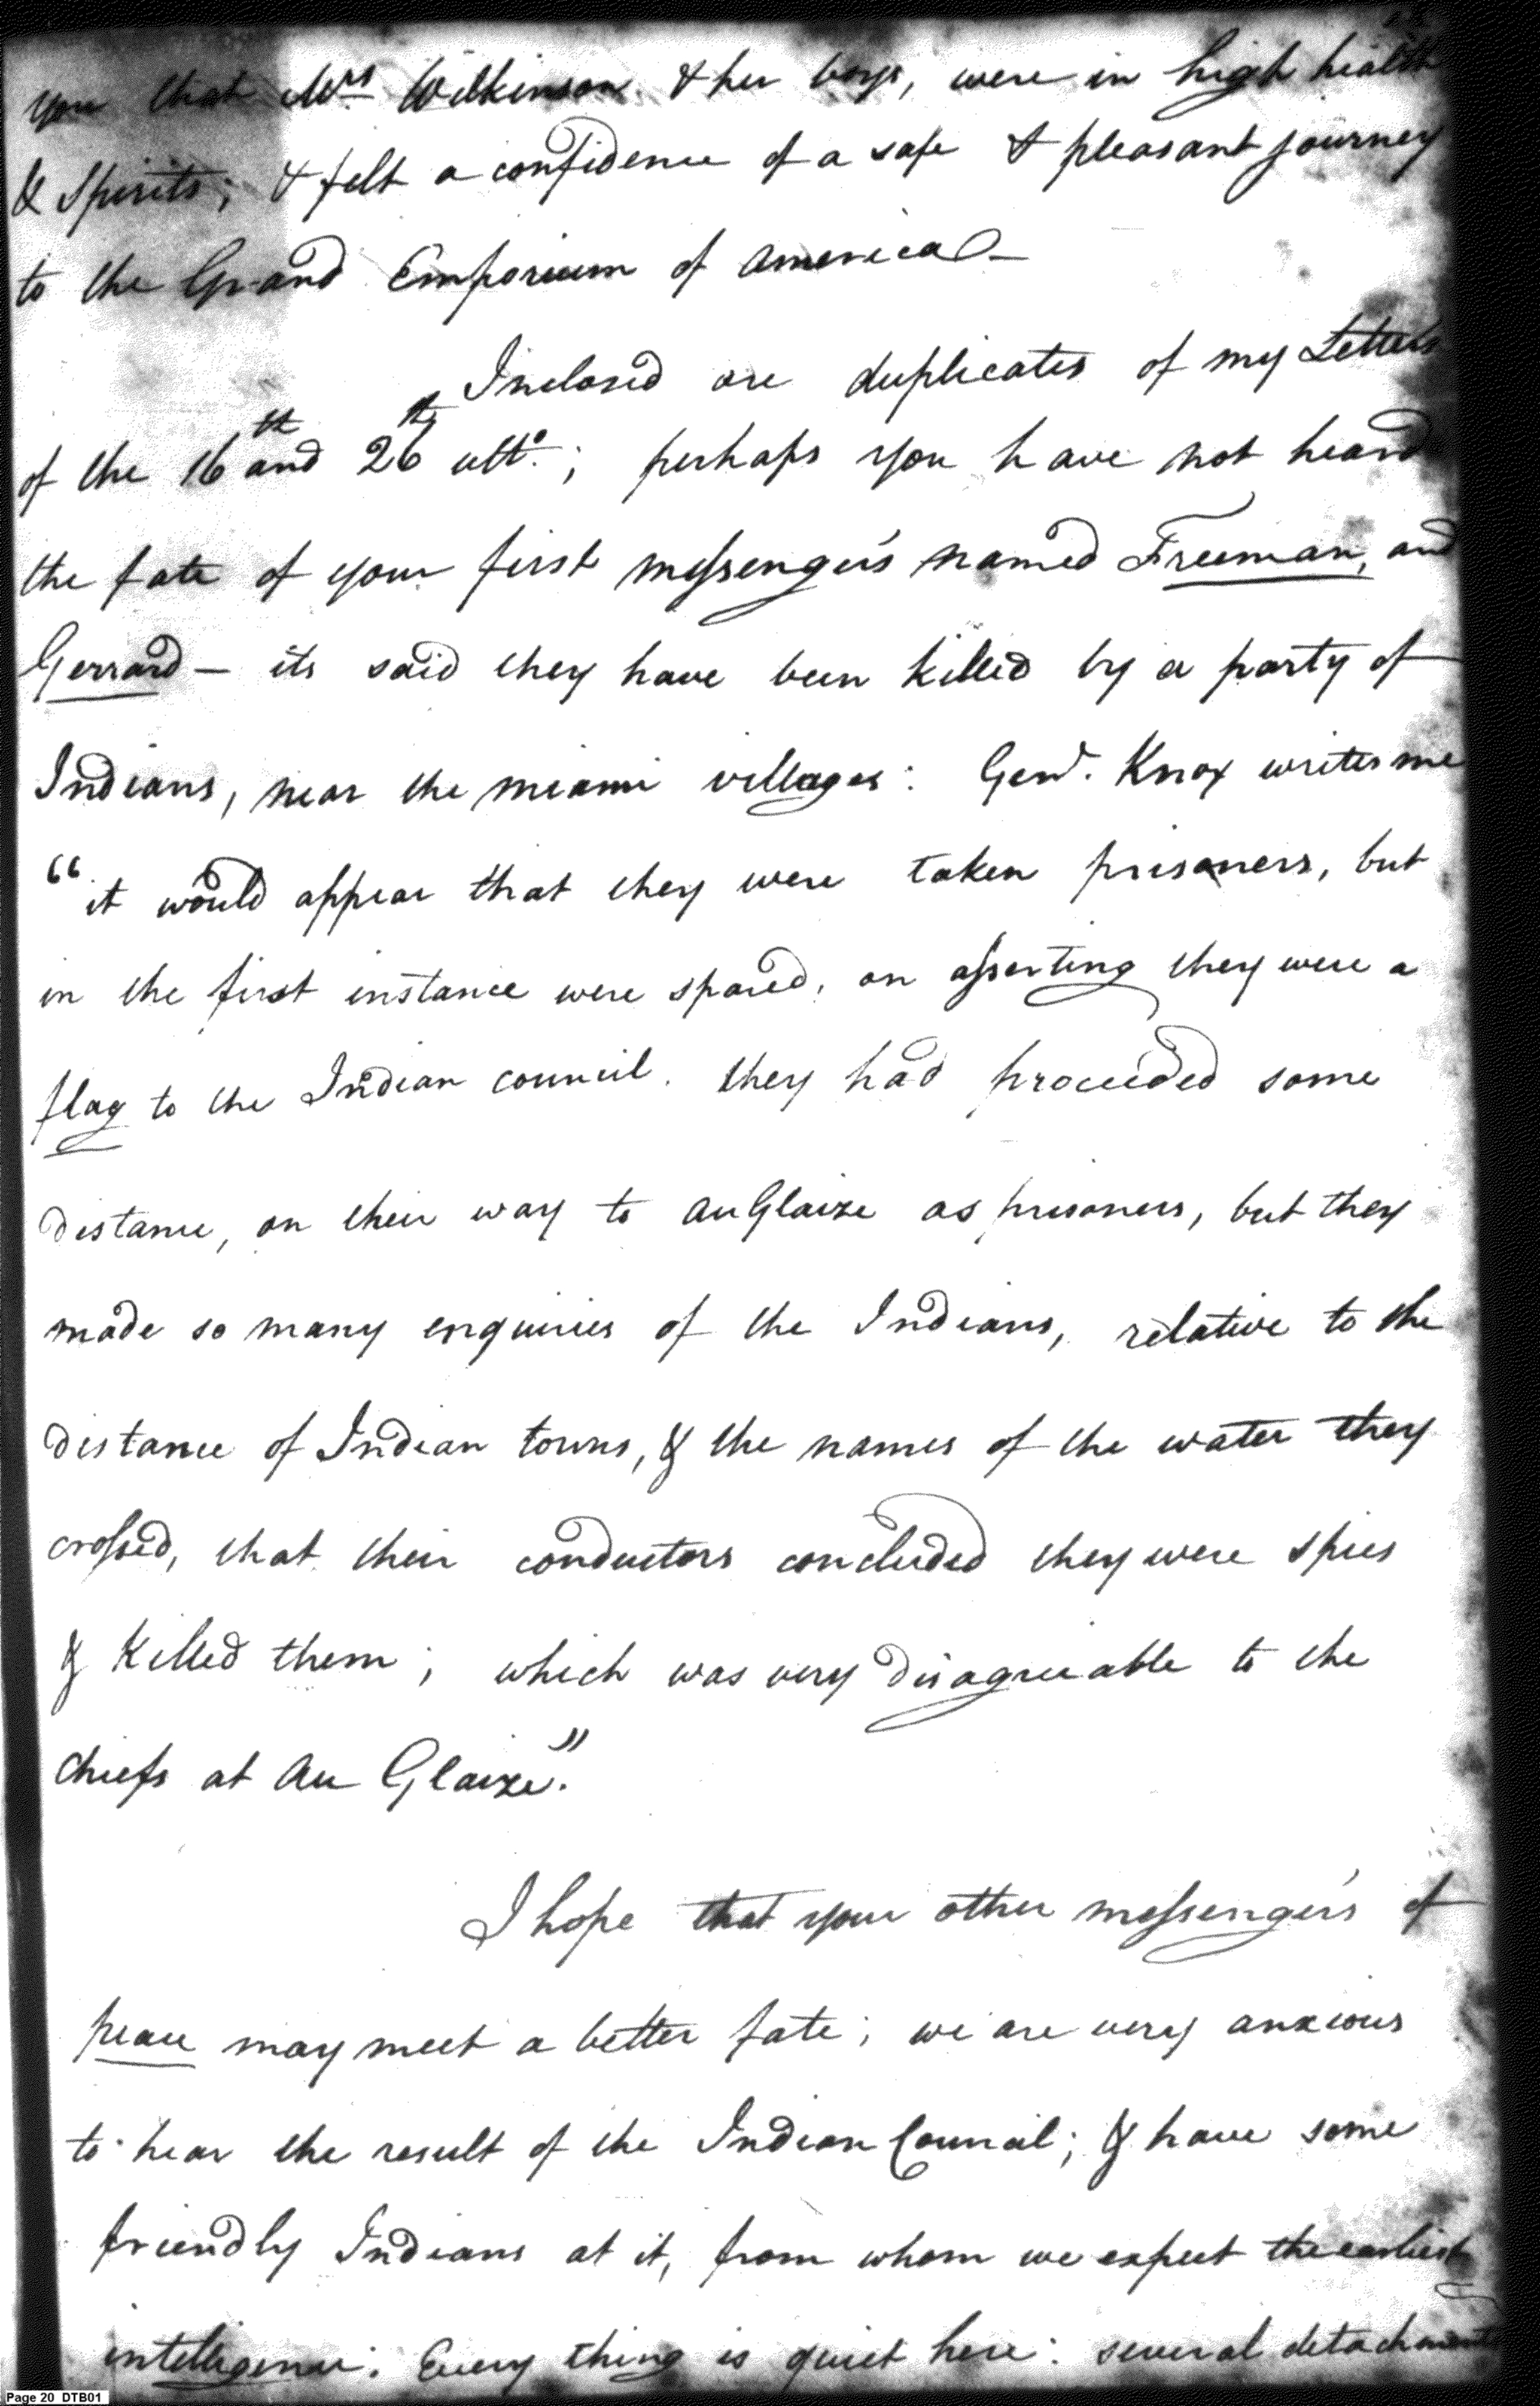 you that Mrs Wilkinson & her boys, were in high health
& Spirits; & felt a confidence of a safe & pleasant journey
to the Grand Emporium of America —
Inclosed are duplicates of my Letters
of the 16th and 26th ulto.; perhaps you have not heard
the fate of your first messenger's named Freeman, and
Gerrard — its said they have been killed by a party of
Indians, near the miami villages: Genl. Knox writes me
"it would appear that they were taken prisoners, but
in the first instance were spared, on asserting they were a
flag to the Indian council. they had proceeded some
distance, on their way to auGlaize as prisoners, but they
made so many enquiries of the Indians, relative to the
distance of Indian towns, & the names of the water they
crossed, that their conductors concluded they were spies
& killed them; which was very disagreeable to the
chiefs at au Glaize."
I hope that your other messenger's of
peace may meet a better fate; we are very anxious
to hear the result of the Indian Council; & have some
friendly Indians at it, from whom we expect the earliest
intelligence. Every thing is quiet here: several detachments
Page 20 DTB01